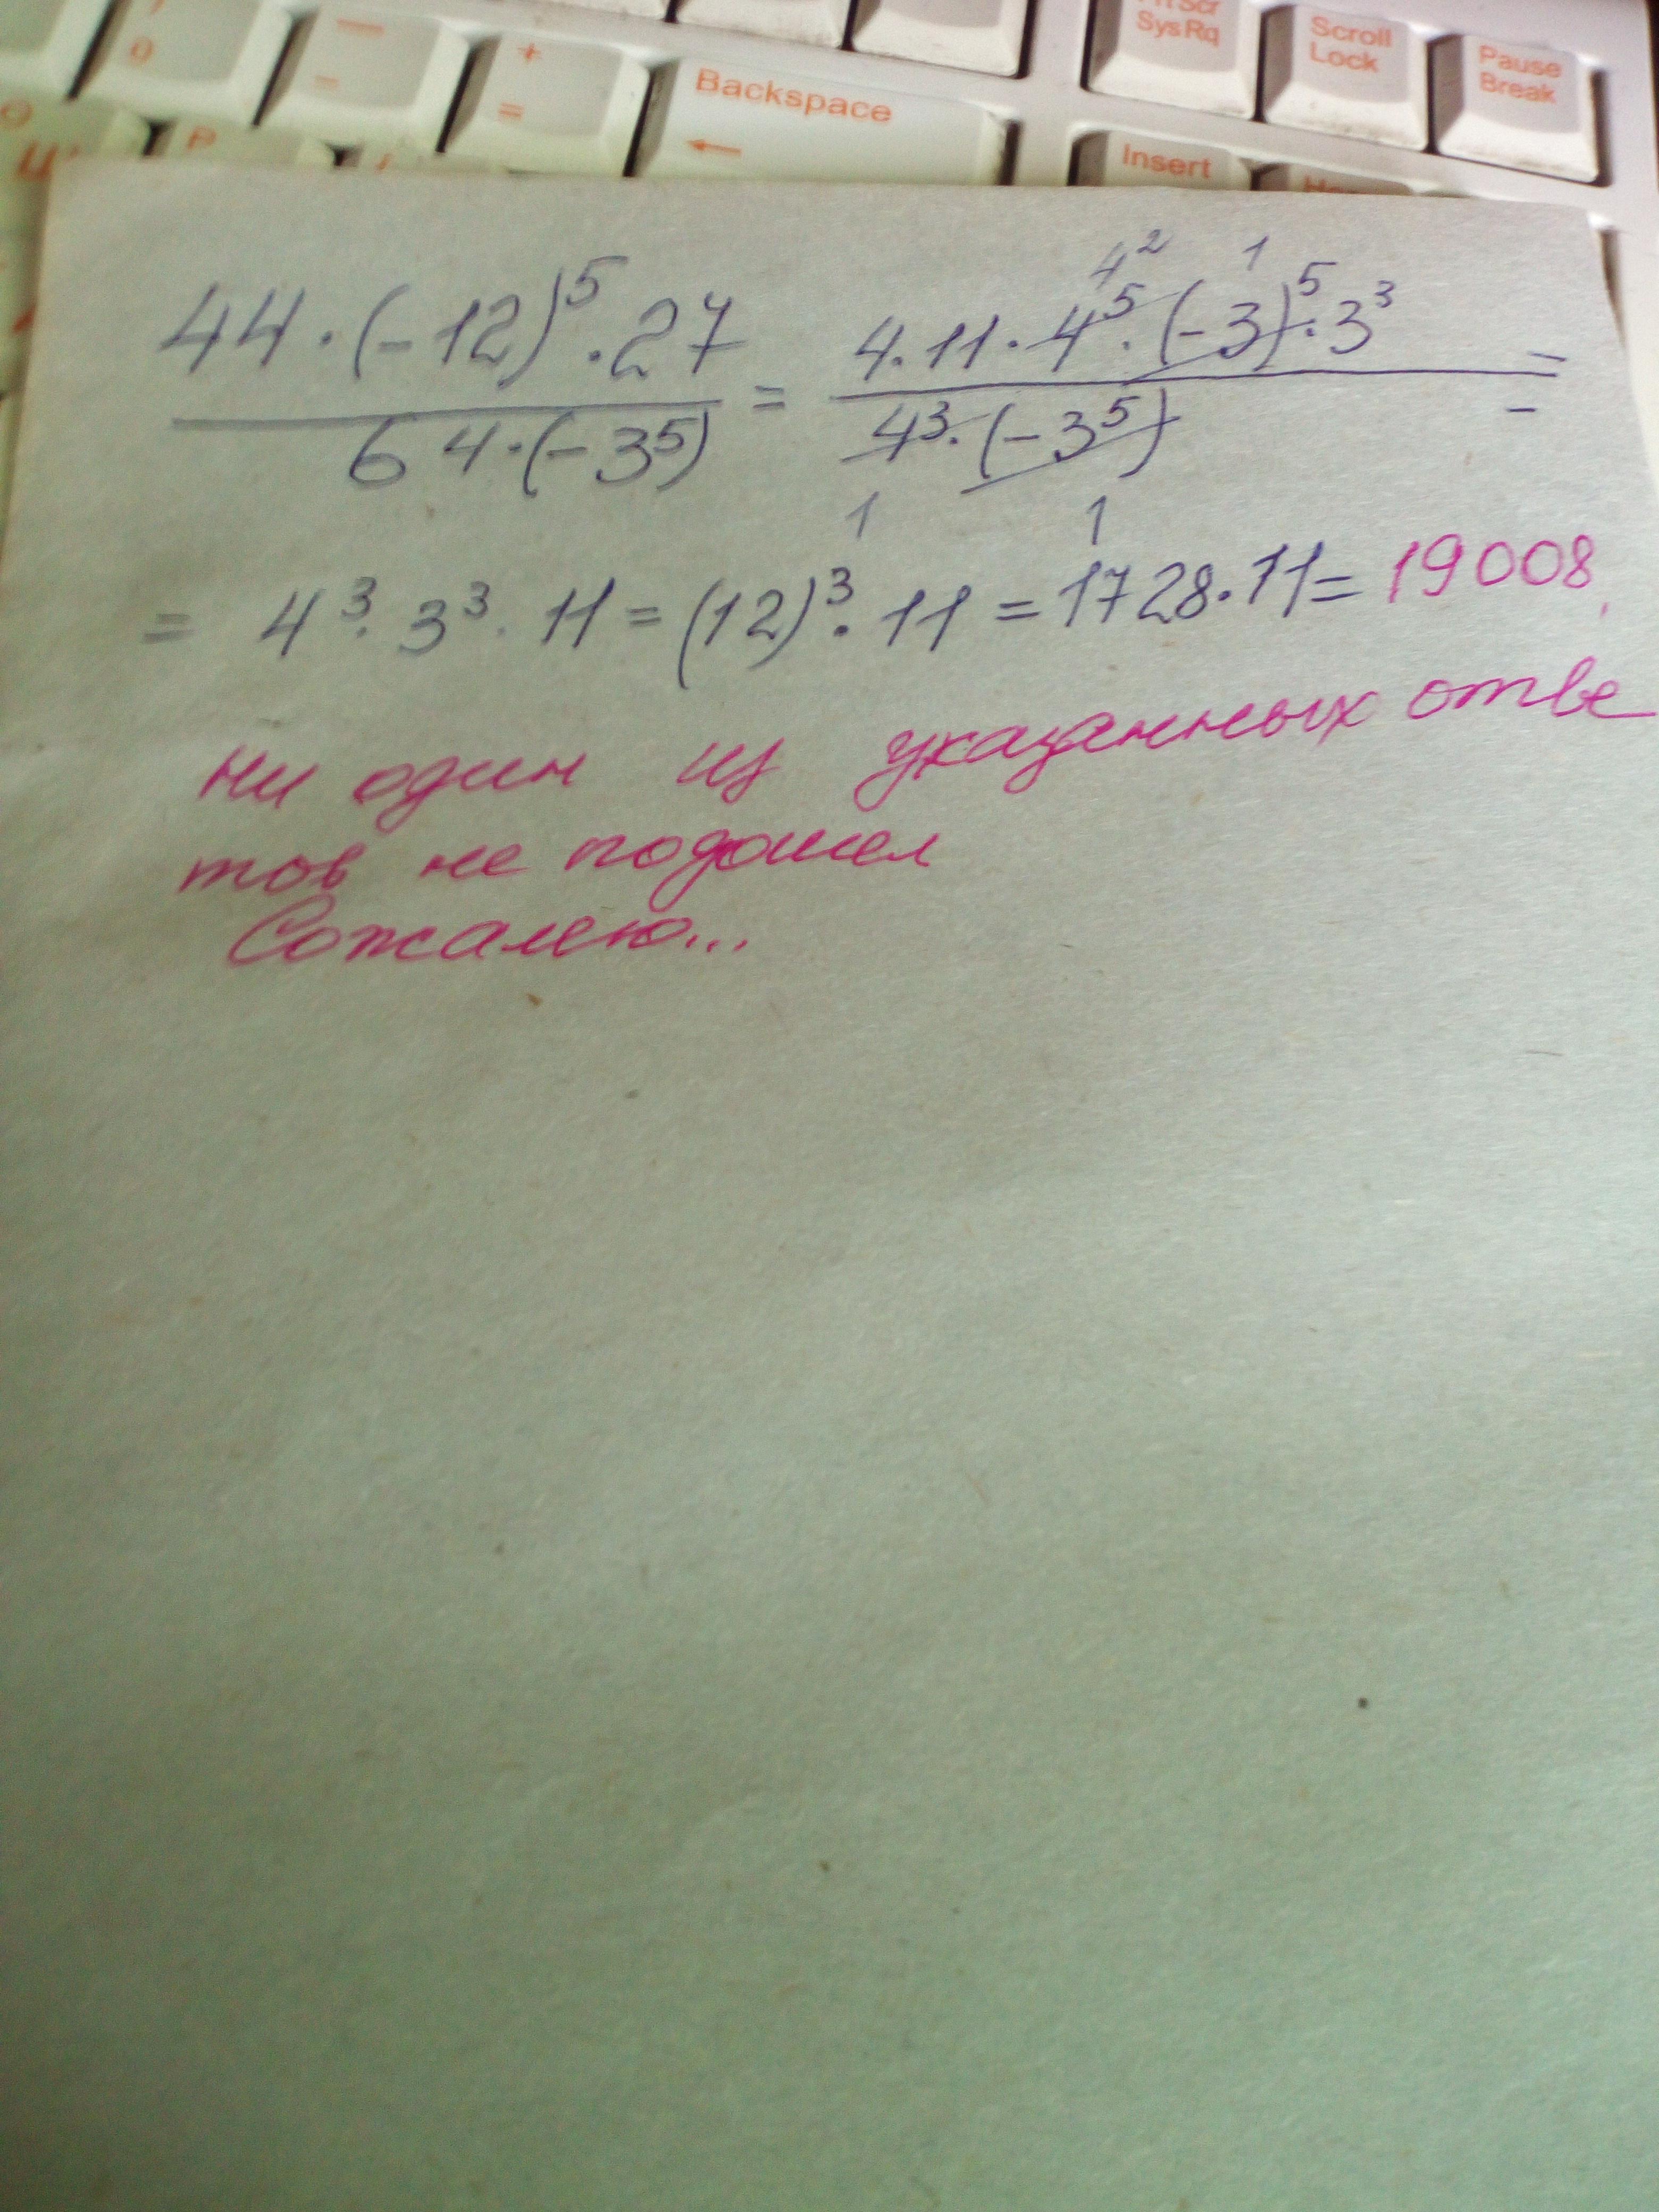 Sys Rq
Scroll
Lock
Pause
Break
Backspace
Insert
44·(-12)⁵·27 / 64·(-3⁵) = 4·11·4⁵·(-3)⁵·3³ / 4³·(-3⁵) =
4² 1
1 1
= 4³·3³·11 = (12)³·11 = 1728·11 = 19008.
ни один из указанных отве
тов не подошел
Сожалею...